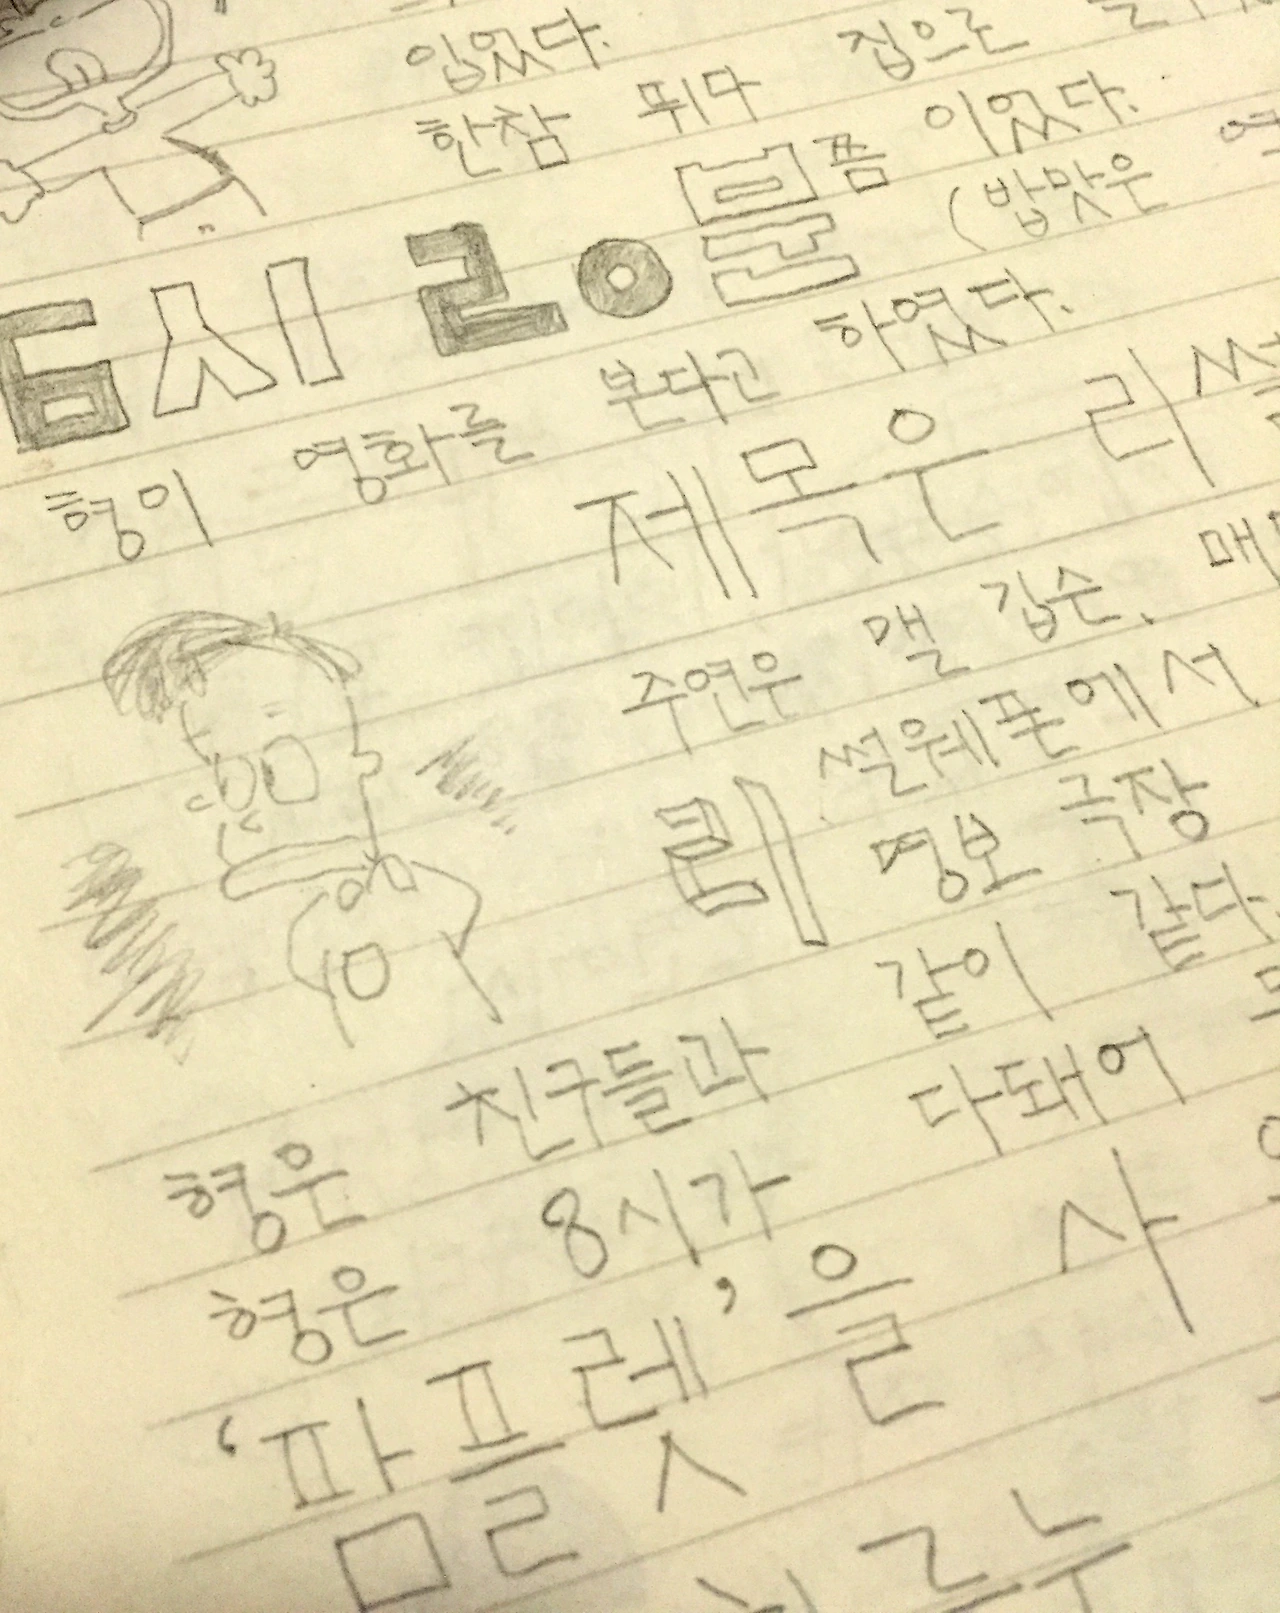 입었다.
한참 뛰다 집으로
6시 20분쯤 이었다.
(밥맛은
형이 영화를 본다고 하였다.
제목은 리썰
주연은 맬 깁슨,
썰웨폰에서
명보 극장
형은 친구들과 같이 갔다.
형은 8시가 다돼어
'팜플렛'을 사